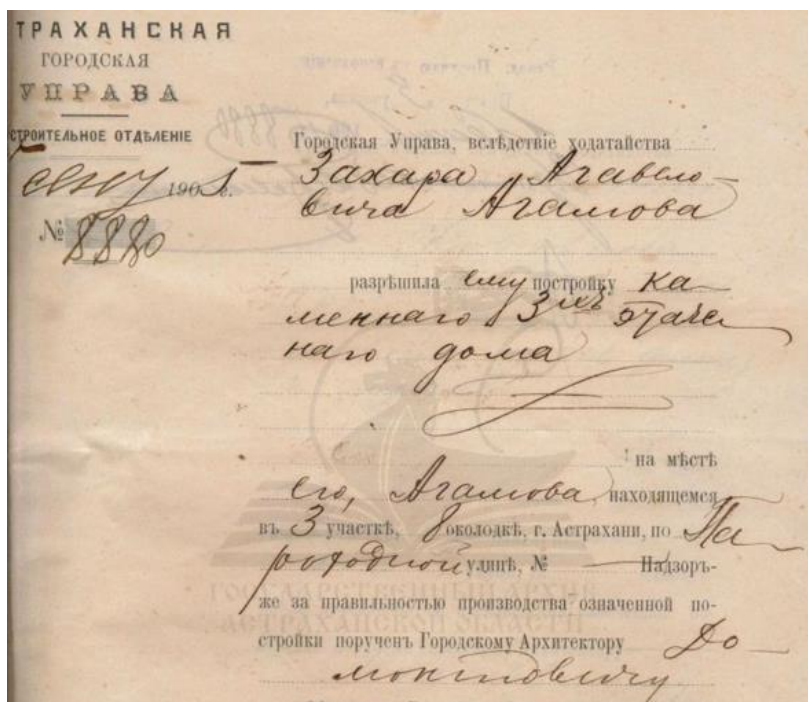 ТРАХАНСКАЯ
ГОРОДСКАЯ
УПРАВА
СТРОИТЕЛЬНОЕ ОТДѢЛЕНІЕ
1905 г.
№ 8880
Городская Управа, вслѣдствіе ходатайства
Захара Агавело-
вича Агамова
разрѣшила ему постройку ка-
меннаго 3хъ этаж
наго дома
на мѣстѣ
его, Агамова, находящемся
въ 3 участкѣ, 8 околодкѣ, г. Астрахани, по Па-
роходной улицѣ, № — Надзоръ-
же за правильностью производства означенной по-
стройки порученъ Городскому Архитектору До-
монтовичу
ГОСУДАРСТВЕННЫЙ АРХИВ
АСТРАХАНСКОЙ ОБЛАСТИ